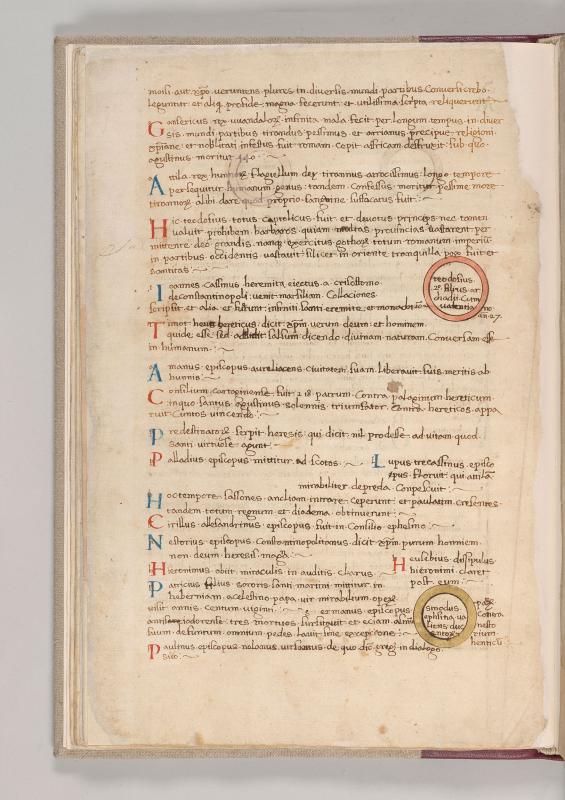 moisi aut xpo verientes plures in diversis mundi partibus
leguntur et aliq profide magna fecerunt et utillissima scripta reliquerunt
Gansericus rex uuandalorz infinita mala fecit per longum tempus in diver
sis mundi partibus tirandus pessimus et arrianus precipue religioni
xpiane et nobilitati infestus fuit romam cepit affricam destruxit sub quo
agustinus moritur 440
Atila rex hunnorz flagellum dei tirannus atrocissimus longo tempore
persequitur humanum genus tandem confessus moritur pessime more
tirannorz alibi dare quod proprio sanguine suffocatus fuit
Hic teodosius totus captolicus fuit et devotus princeps nec tamen
valuit prohibem barbaros quiam multas provincias vastarent per
mittente deo grandis nanqz exercitus gothorz totum romanum imperium
in partibus occidentis vastavit silicet in oriente tranquilla pax fuit et
santitas
teodosius
2s filius ar
chadii cum
valentia no
an 27
Ioannes cassinus heremita eiectus a crisostomo
deconstantinopoli venit marsiliam collaciones
scripsit et alia et fuerunt infiniti santi eremite et
Timot hereticus dicit xpm verum deum et hominem
quide esse sed falsum dicendo divinam naturam conversam esse
in humanum
Amanus episcopus aureliacens civitatem suam liberavit suis meritis ab
hunnis
Consilium cartaginense fuit 218 patrum contra palaginum hereticum
in quo santus agustinus solemnis triumfator contra hereticos appa
ruit cuntos vincendo
Predestinatorz serpit heresis qui dicit nil prodesse ad vitam quod
santi virtuose agunt
Palladius episcopus mittitur ad scotos
Lupus trecassinus episco
pus floruit qui atila
mirabiliter depreda conpescuit
Hoc tempore sassones angliam intrare ceperunt et paulatim cresentes
tandem totum regnum et diadema obtinuerunt
Cirillus allesandrinus episcopus fuit in consilio ephesino
Nestorius episcopus constantinopolitanus dicit xpm purum hominem
non deum heresis magna
Hieronimus obiit miraculis in auditis clarus
Heusebius dissipulus
hieronimi claret
post eum
Patricius filius sororis santi martini mittitur in
heberniam acelestino papa vir mirabilium operz
visit annis centum viginti
germanus episcopus
antisiodorense tres mortuos sursitavit et eciam
suum defuntum omnium pedes lavit sine excepcione
sinodus
ephisina va
liens duc
entorz
patrz
contra
nesto
rium
henticu
Paulinus episcopus nolanus vir santus de quo dic greg in dialogo
suo